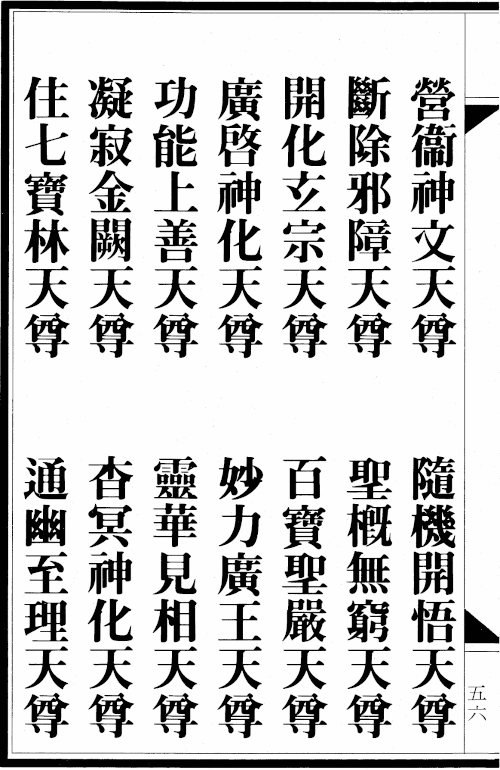 營衞神文天尊　隨機開悟天尊
斷除邪障天尊　聖概無窮天尊
開化玄宗天尊　百寶聖嚴天尊
廣啓神化天尊　妙力廣王天尊
功能上善天尊　靈華見相天尊
凝寂金闕天尊　杳冥神化天尊
住七寶林天尊　通幽至理天尊
五六